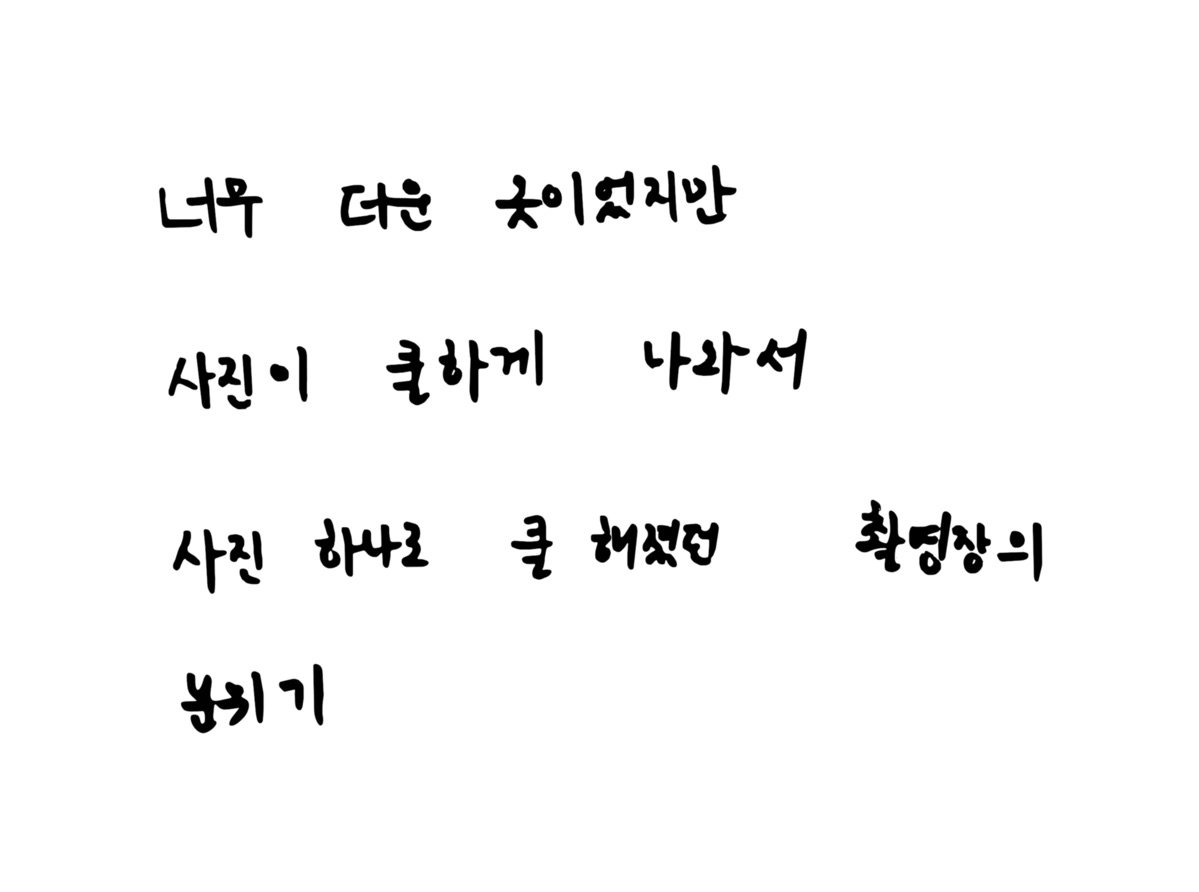 너무 더운 곳이었지만
사진이 쿨하게 나와서
사진 하나로 쿨 해졌던 촬영장의
분위기